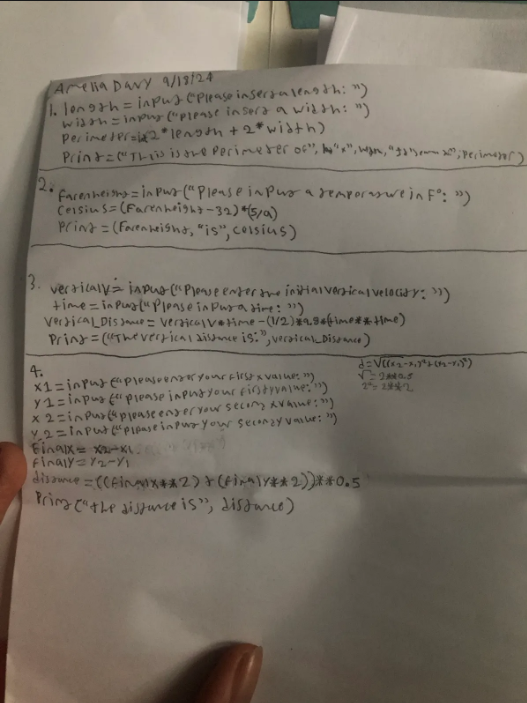 Amelia Davy 9/18/24
1. length = input("Please insert a length: ")
width = input("please insert a width: ")
Perimeter = 2*length + 2*width)
Print = ("This is the Perimeter of", "x", width, perimeter)
2. Farenheight = input("Please input a temperature in F°: ")
Celsius = (Farenheight-32)*(5/9)
Print = (Farenheight, "is", celsius)
3. verticalv = input("Please enter the initial vertical velocity: "))
time = input("Please input a time: "))
vertical_Distance = verticalv*time - (1/2)*9.8*(time**time)
Print = ("The vertical distance is:", vertical_Distance)
4.
x1 = input("please enter your first x value: ")
y1 = input("please input your first y value: ")
x2 = input("please enter your second x value: ")
y2 = input("please input your second y value: ")
finalx = x2-x1
finaly = y2-y1
distance = ((finalx**2) + (finaly**2))**0.5
Print("the distance is", distance)
d = √((x2-x1)²+(y2-y1)²